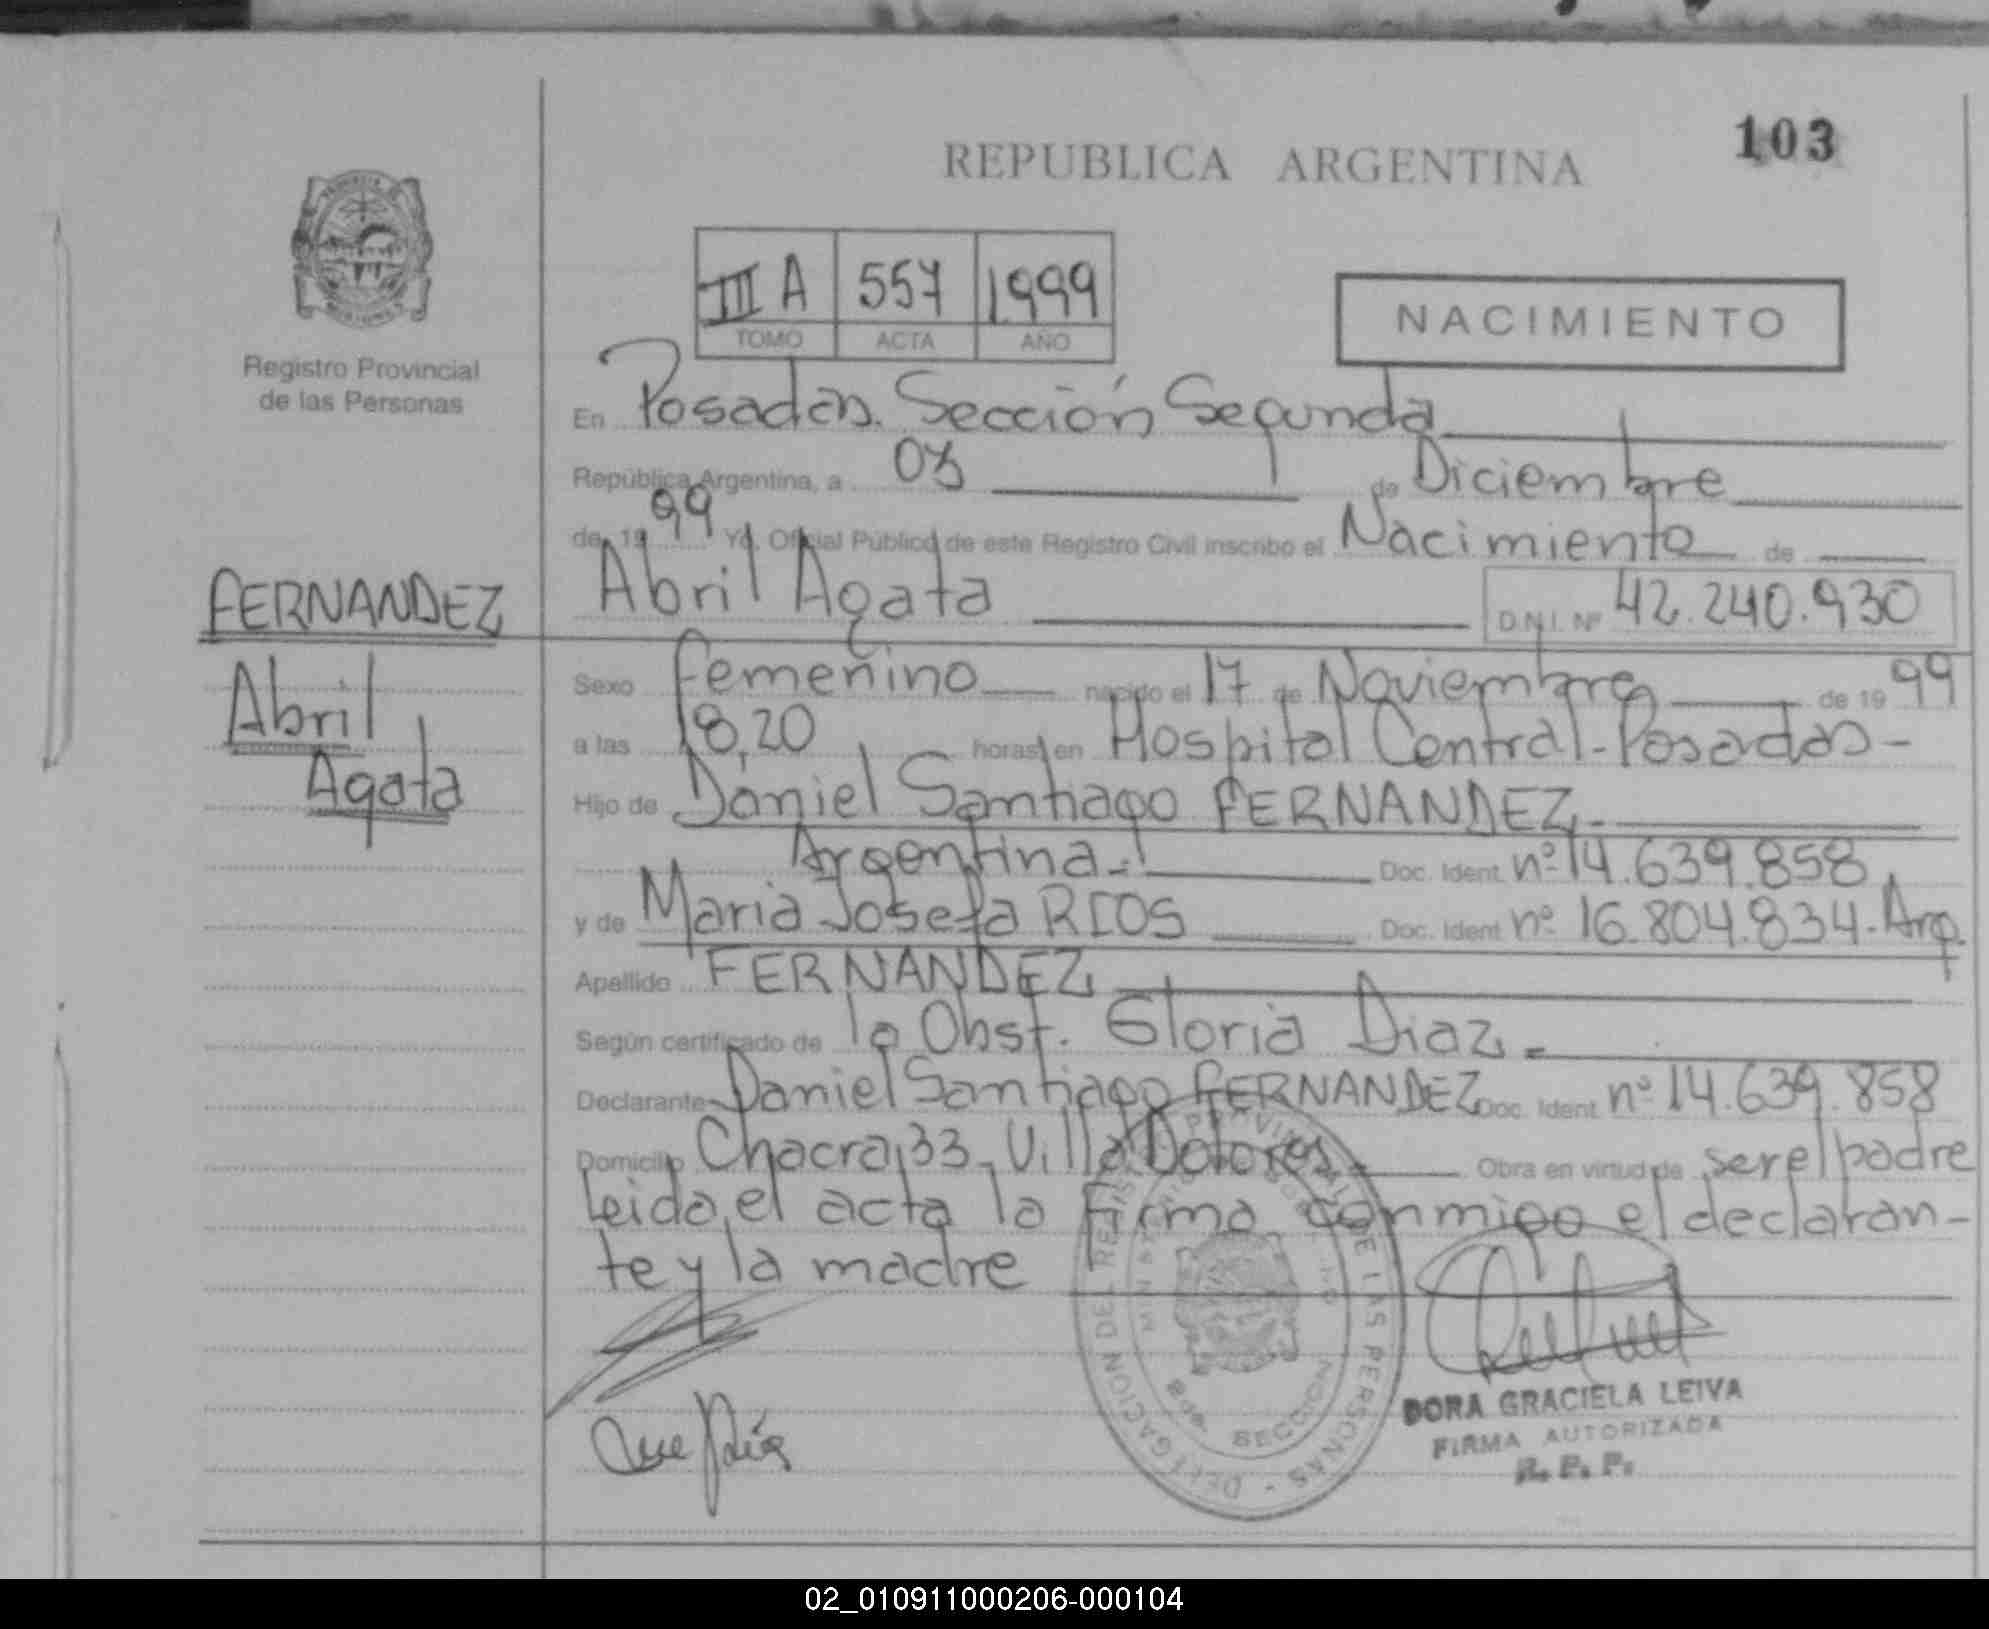 103
REPUBLICA ARGENTINA
Registro Provincial
de las Personas
III A 557 1999
TOMO ACTA AÑO
NACIMIENTO
En Posadas. Sección Segunda
República Argentina, a 03 de Diciembre
de 1999 Yo, Oficial Público de este Registro Civil inscribo el Nacimiento de
FERNANDEZ
Abril Agata
Abril Agata D.N.I. Nº 42.240.930
Sexo Femenino nacido el 17 de Noviembre de 1999
a las 18,20 horas en Hospital Central-Posadas-
Hijo de Daniel Santiago FERNANDEZ-
Argentina.- Doc. Ident. nº 14.639.858
y de Maria Josefa RIOS Doc. Ident. nº 16.804.834. Arg.
Apellido FERNANDEZ
Según certificado de la Obst. Gloria Diaz-
Declarante Daniel Santiago FERNANDEZ Doc. Ident. nº 14.639.858
Domicilio Chacra 33, Villa Dolores- Obra en virtud de ser el padre
leida el acta la firma conmigo el declaran-
te y la madre
DELEGACION DEL REGISTRO PROVINCIAL DE LAS PERSONAS
SECCION
DORA GRACIELA LEIVA
FIRMA AUTORIZADA
R. P. P.
02_010911000206-000104